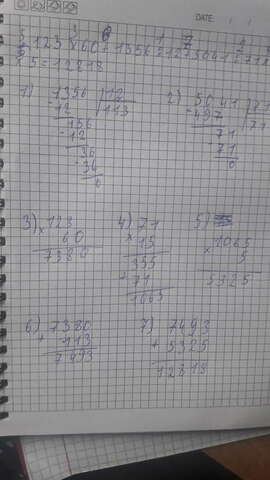 DATE: / /
123 x 60 + 1356 : 12 + 5041 : 71
5 = 12818
1) 1356 | 12
- 12 | 113
156
- 12
36
- 36
0
2) 5041 | 71
- 497 | 71
71
71
0
3) 123
x 60
7380
4) 71
x 15
355
+ 71
1065
5)
1065
x 5
5325
6) 7380
+ 113
7493
7) 7493
+ 5325
12818